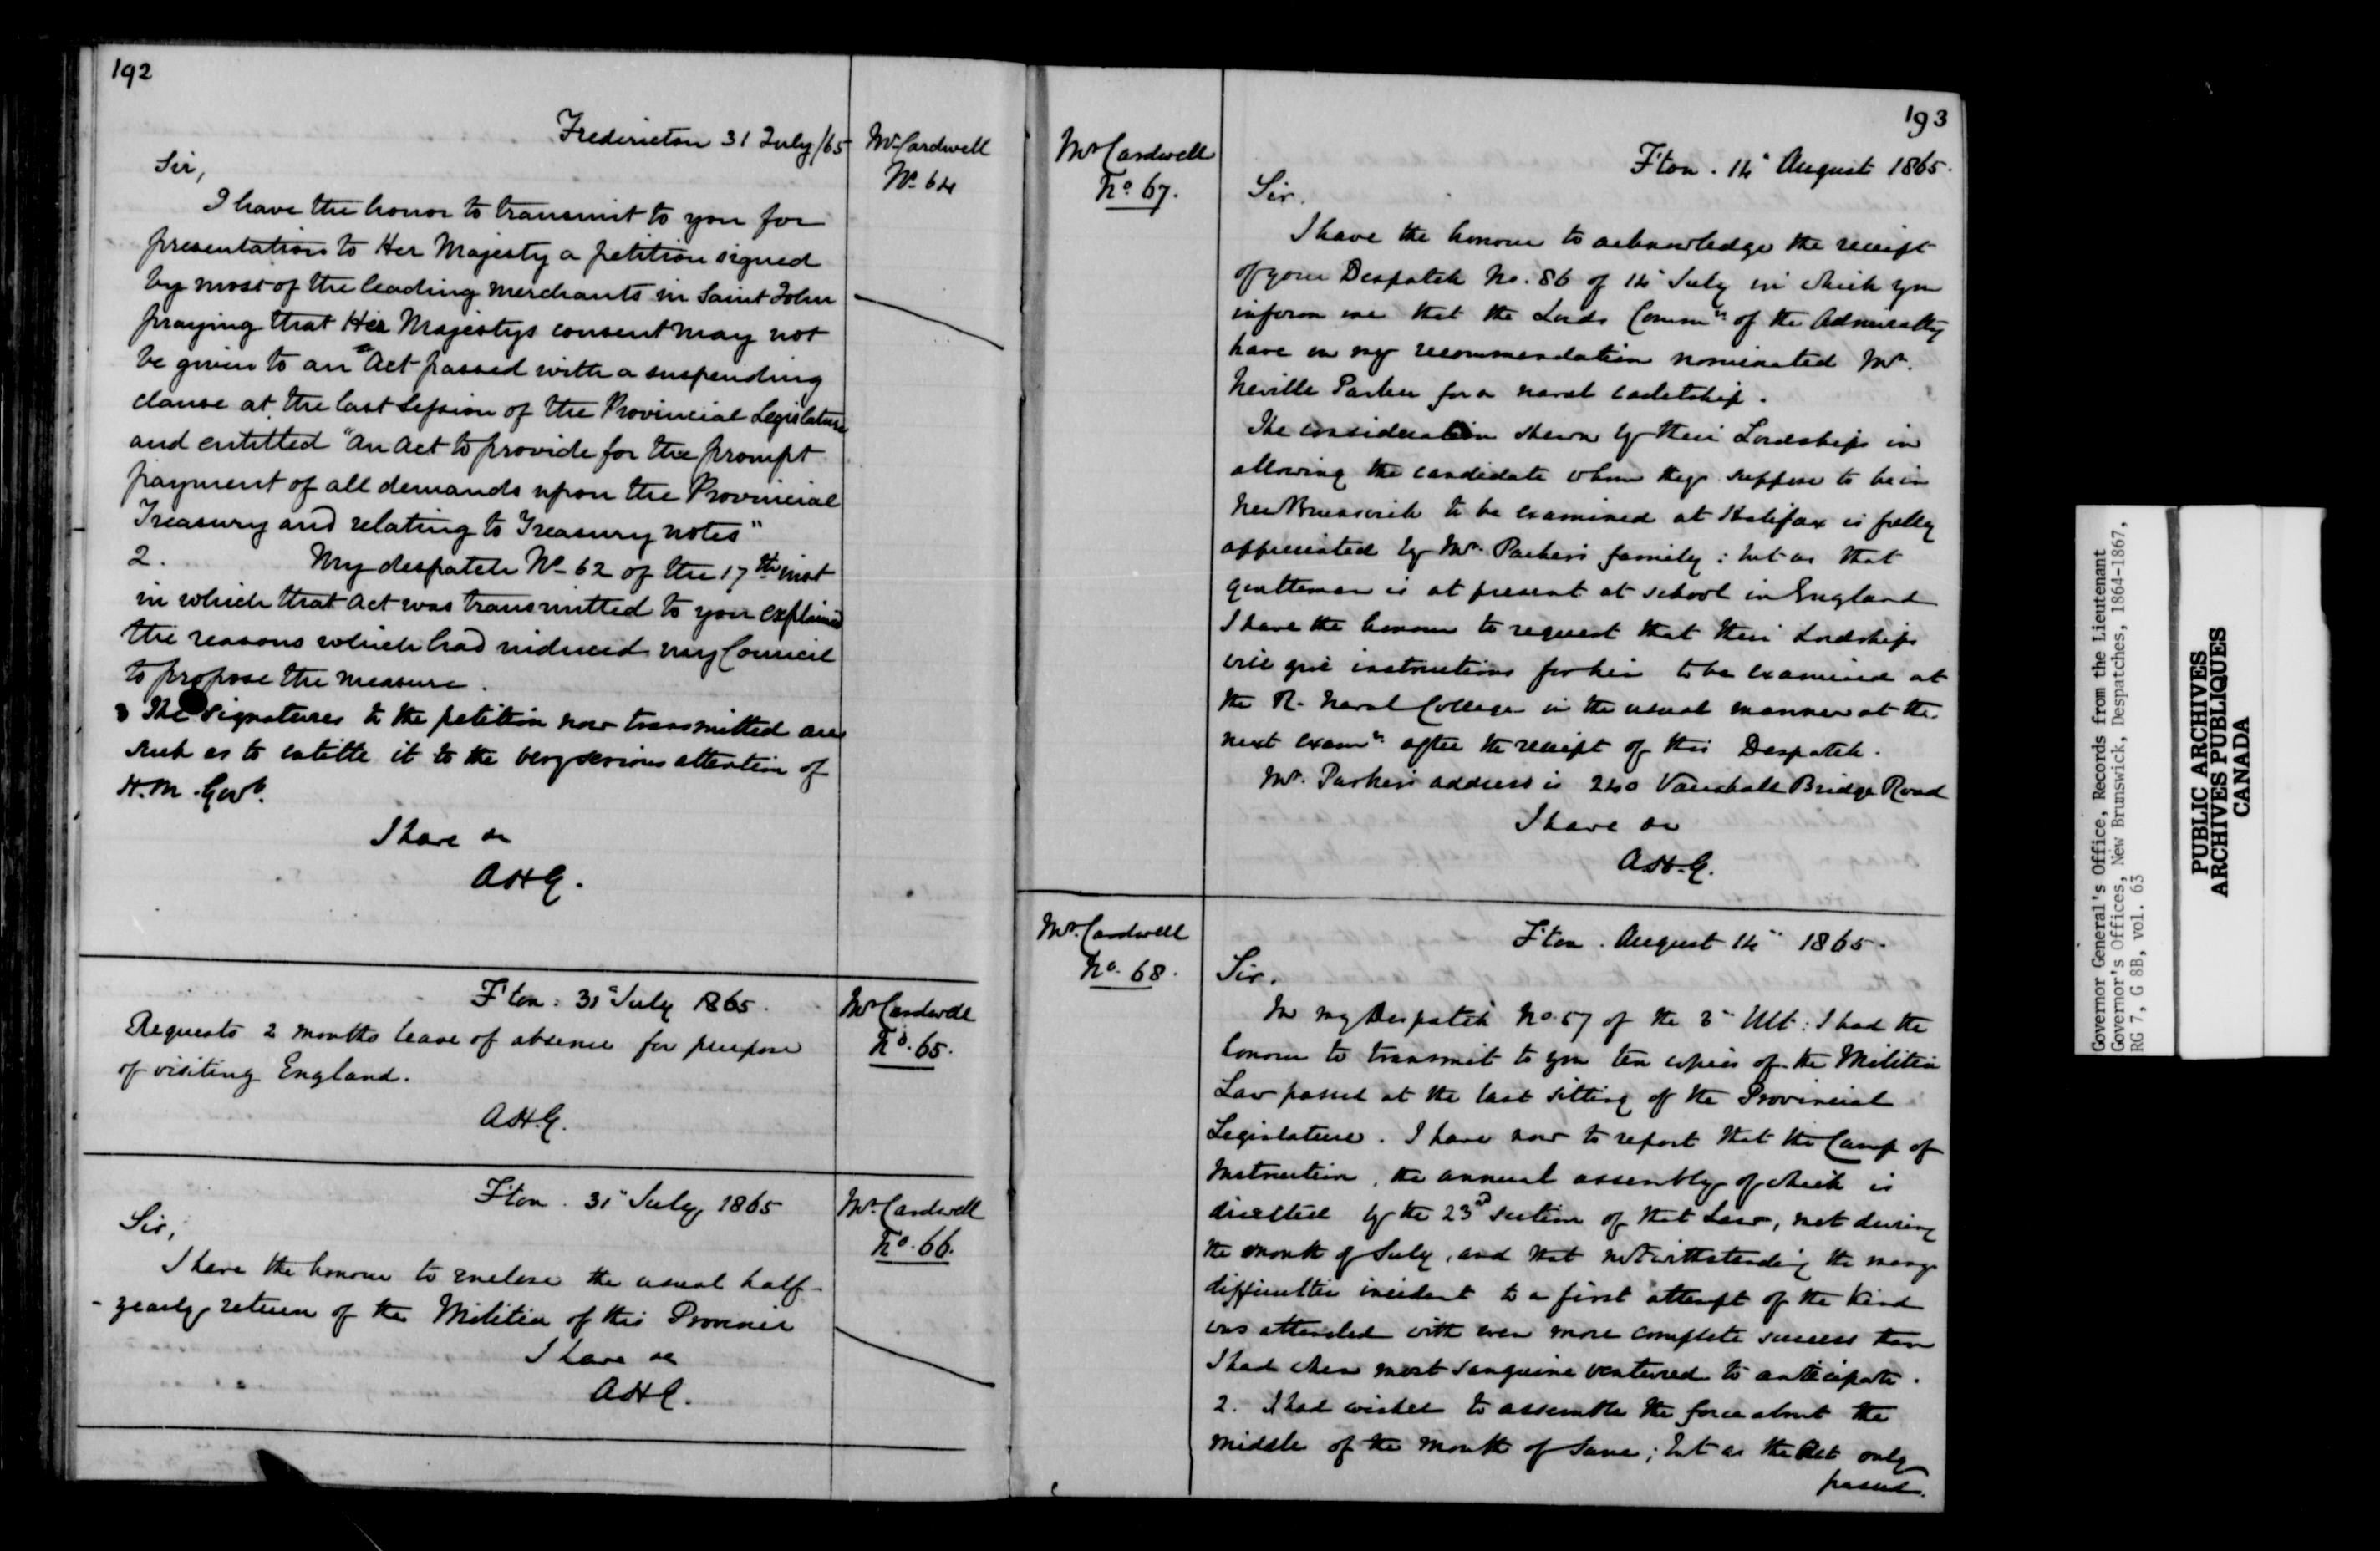 192
Fredericton 31 July/65
Mr Cardwell
No 64
Sir,
I have the honor to transmit to you for
presentation to Her Majesty a petition signed
by most of the leading Merchants in Saint John
praying that Her Majestys consent may not
be given to an Act passed with a suspending
clause at the last Session of the Provincial Legislature
and entitled "An Act to provide for the prompt
payment of all demands upon the Provincial
Treasury and relating to Treasury notes"
2. My despatch No 62 of the 17th inst
in which that Act was transmitted to you explained
the reasons which had induced my Council
to propose the measure.
3 The signatures to the petition now transmitted are
such as to entitle it to the very serious attention of
H.M. Govt.
I have &c
AHG.
F'ton. 31" July 1865.
Mr Cardwell
No. 65.
Requests 2 months leave of absence for purpose
of visiting England.
AHG.
F'ton. 31" July 1865
Mr Cardwell
No. 66.
Sir,
I have the honour to enclose the usual half-
-yearly return of the Militia of this Province
I have &c
AHG.
193
Mr Cardwell
No. 67.
F'ton. 14" August 1865.
Sir.
I have the honour to acknowledge the receipt
of your Despatch No. 86 of 14" July in which you
inform me that the Lords Commrs of the Admiralty
have on my recommendation nominated Mr.
Neville Parker for a naval cadetship.
The consideration shewn by their Lordships in
allowing the candidate whom they suppose to be in
New Brunswick to be examined at Halifax is fully
appreciated by Mr. Parker's family: but as that
gentleman is at present at school in England
I have the honour to request that their Lordships
will give instructions for him to be examined at
the R. Naval College in the usual manner at the
next examn. after the receipt of this Despatch.
Mr. Parker's address is 240 Vauxhall Bridge Road
I have &c
A.H.G.
Mr. Cardwell
No. 68.
F'ton. August 14" 1865.
Sir.
In my Despatch No. 57 of the 3" Ult: I had the
honour to transmit to you ten copies of the Militia
Law passed at the last sitting of the Provincial
Legislature. I have now to report that the Camp of
Instruction, the annual assembly of which is
directed by the 23d section of that Law, met during
the month of July, and that notwithstanding the many
difficulties incident to a first attempt of the kind
was attended with even more complete success than
I had when most sanguine ventured to anticipate.
2. I had wished to assemble the force about the
middle of the month of June; but as the Act only
passed.
Governor General's Office, Records from the Lieutenant
Governor's Offices, New Brunswick, Despatches, 1864-1867,
RG 7, G 8B, vol. 63
PUBLIC ARCHIVES
ARCHIVES PUBLIQUES
CANADA